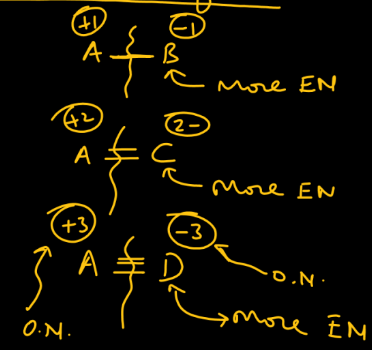 +1 -1
A – B
More EN
+2 2-
A = C
More EN
+3 -3
A ≡ D
O.N.
O.N. More EN